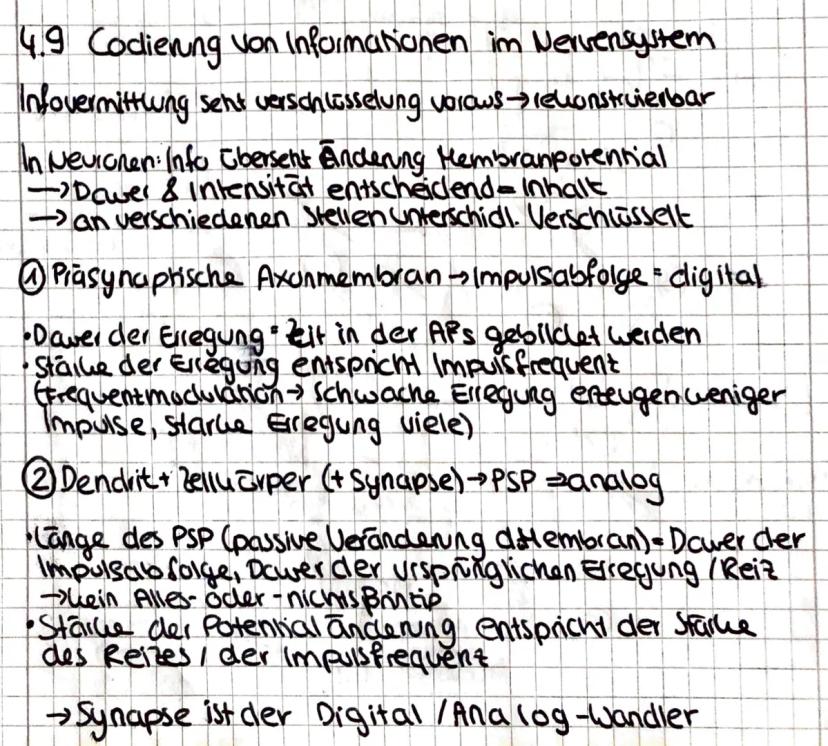 4.9 Codierung von Informationen im Nervensystem
Infovermittlung setzt verschlüsselung voraus → rekonstruierbar
In Neuronen: Info übersetzt Änderung Membranpotential
→ Dauer & Intensität entscheidend = Inhalt
→ an verschiedenen Stellen unterschidl. Verschlüsselt
① Präsynaptische Axonmembran → Impulsabfolge = digital
• Dauer der Erregung = Zeit in der APs gebildet werden
• Stärke der Erregung entspricht Impulsfrequenz
(Frequenzmodulation → schwache Erregung erzeugen weniger
Impulse, starke Erregung viele)
② Dendrit + Zellkörper (+ Synapse) → PSP ⇒ analog
• Länge des PSP (passive Veränderung d. Membran) = Dauer der
Impulsabfolge, Dauer der ursprünglichen Erregung / Reiz
→ kein Alles-oder-nichts Prinzip
• Stärke der Potentialänderung entspricht der Stärke
des Reizes / der Impulsfrequenz
→ Synapse ist der Digital / Analog-Wandler